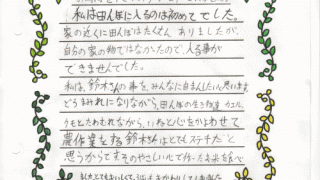 私は田んぼに入るのは初めてでした。
家の近くに田んぼはたくさんありましたが、
自分の家の物ではなかったので、入る事が
できませんでした。
私は、鈴木さんの事を、みんなに自まんしたいと思います。
どろまみれになりながら、田んぼの生き物達、カエル、
とたわむれながら、いねと心をかよわせて
農作業をする鈴木さんはとてもステキだと
思うからです。そのやさしいくて作ったお米を食べ